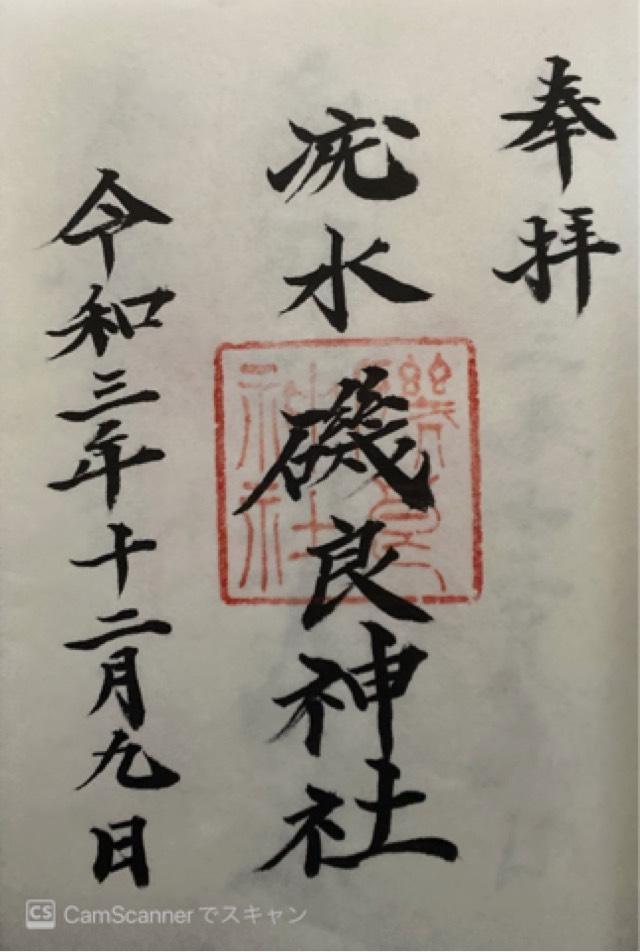 奉拝
疣水 磯良神社
磯良
神社
令和三年十二月九日
CS CamScannerでスキャン